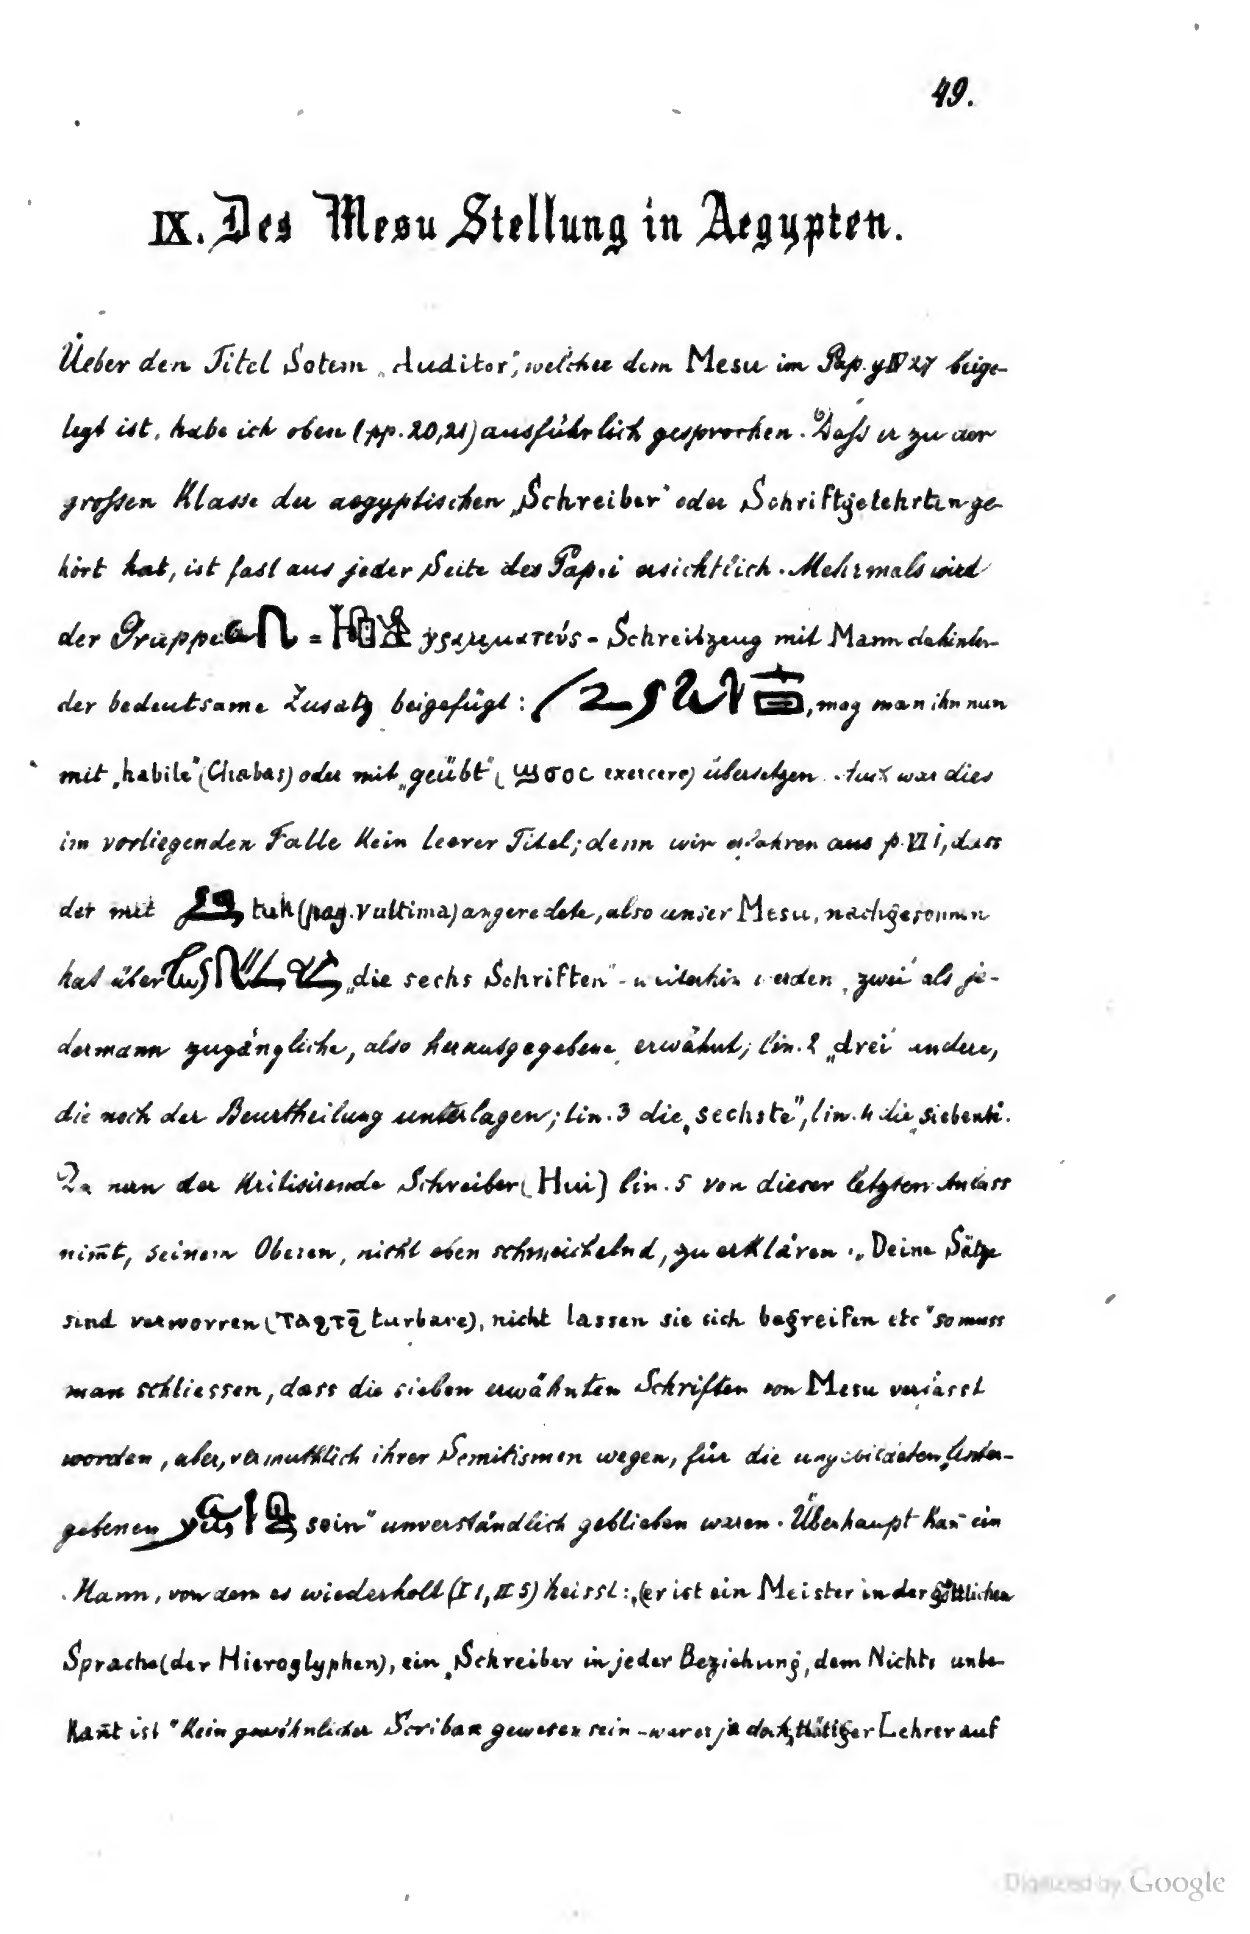 49.
IX. Des Mesu Stellung in Aegypten.
Ueber den Titel Sotem „Auditor", welcher dem Mesu im Pap. beige-
legt ist, habe ich oben (pp. 20,21) ausführlich gesprochen. Daſs er zu der
groſsen Klasse der aegyptischen „Schreiber" oder Schriftgelehrten ge-
hört hat, ist fast aus jeder Seite des Pap. i ersichtlich. Mehrmals wird
der Gruppe = γραμματεύς - Schreibzeug mit Mann dahinter-
der bedeutsame Zusatz beigefügt: , mag man ihn nun
mit „habile" (Chabas) oder mit „geübt" ( exercere) übersetzen. Auch war dies
im vorliegenden Falle kein leerer Titel; denn wir erfahren aus p. VI i, dass
der mit tuk (pag. V ultima) angeredete, also unser Mesu, nachgesonnen
hat über „die sechs Schriften" - weiterhin werden „zwei" als je-
dermann zugängliche, also herausgegebene erwähnt; lin. 2 „drei" andere,
die noch der Beurtheilung unterlagen; lin. 3 die „sechste", lin. 4 die „siebente".
Da nun der kritisirende Schreiber (Hui) lin. 5 von dieser letzten Anlass
nim̅t, seinem Oberen, nicht eben schmeichelnd, zu erklären: „Deine Sätze
sind verworren (ⲧⲁϩⲧϩ̅ turbare), nicht lassen sie sich begreifen etc" so muss
man schliessen, dass die sieben erwähnten Schriften von Mesu verfasst
worden, aber, vermuthlich ihrer Semitismen wegen, für die ungebildeten „Unter-
gebenen sein" unverständlich geblieben waren. Überhaupt kan̅ ein
Mann, von dem es wiederholt (I 1, II 5) heisst: „(er ist ein Meister in der göttlichen
Sprache (der Hieroglyphen), ein „Schreiber in jeder Beziehung, dem Nichts unbe-
kan̅t ist" kein gewöhnlicher Scribax gewesen sein - war er ja doch thätiger Lehrer auf
Digitized by Google